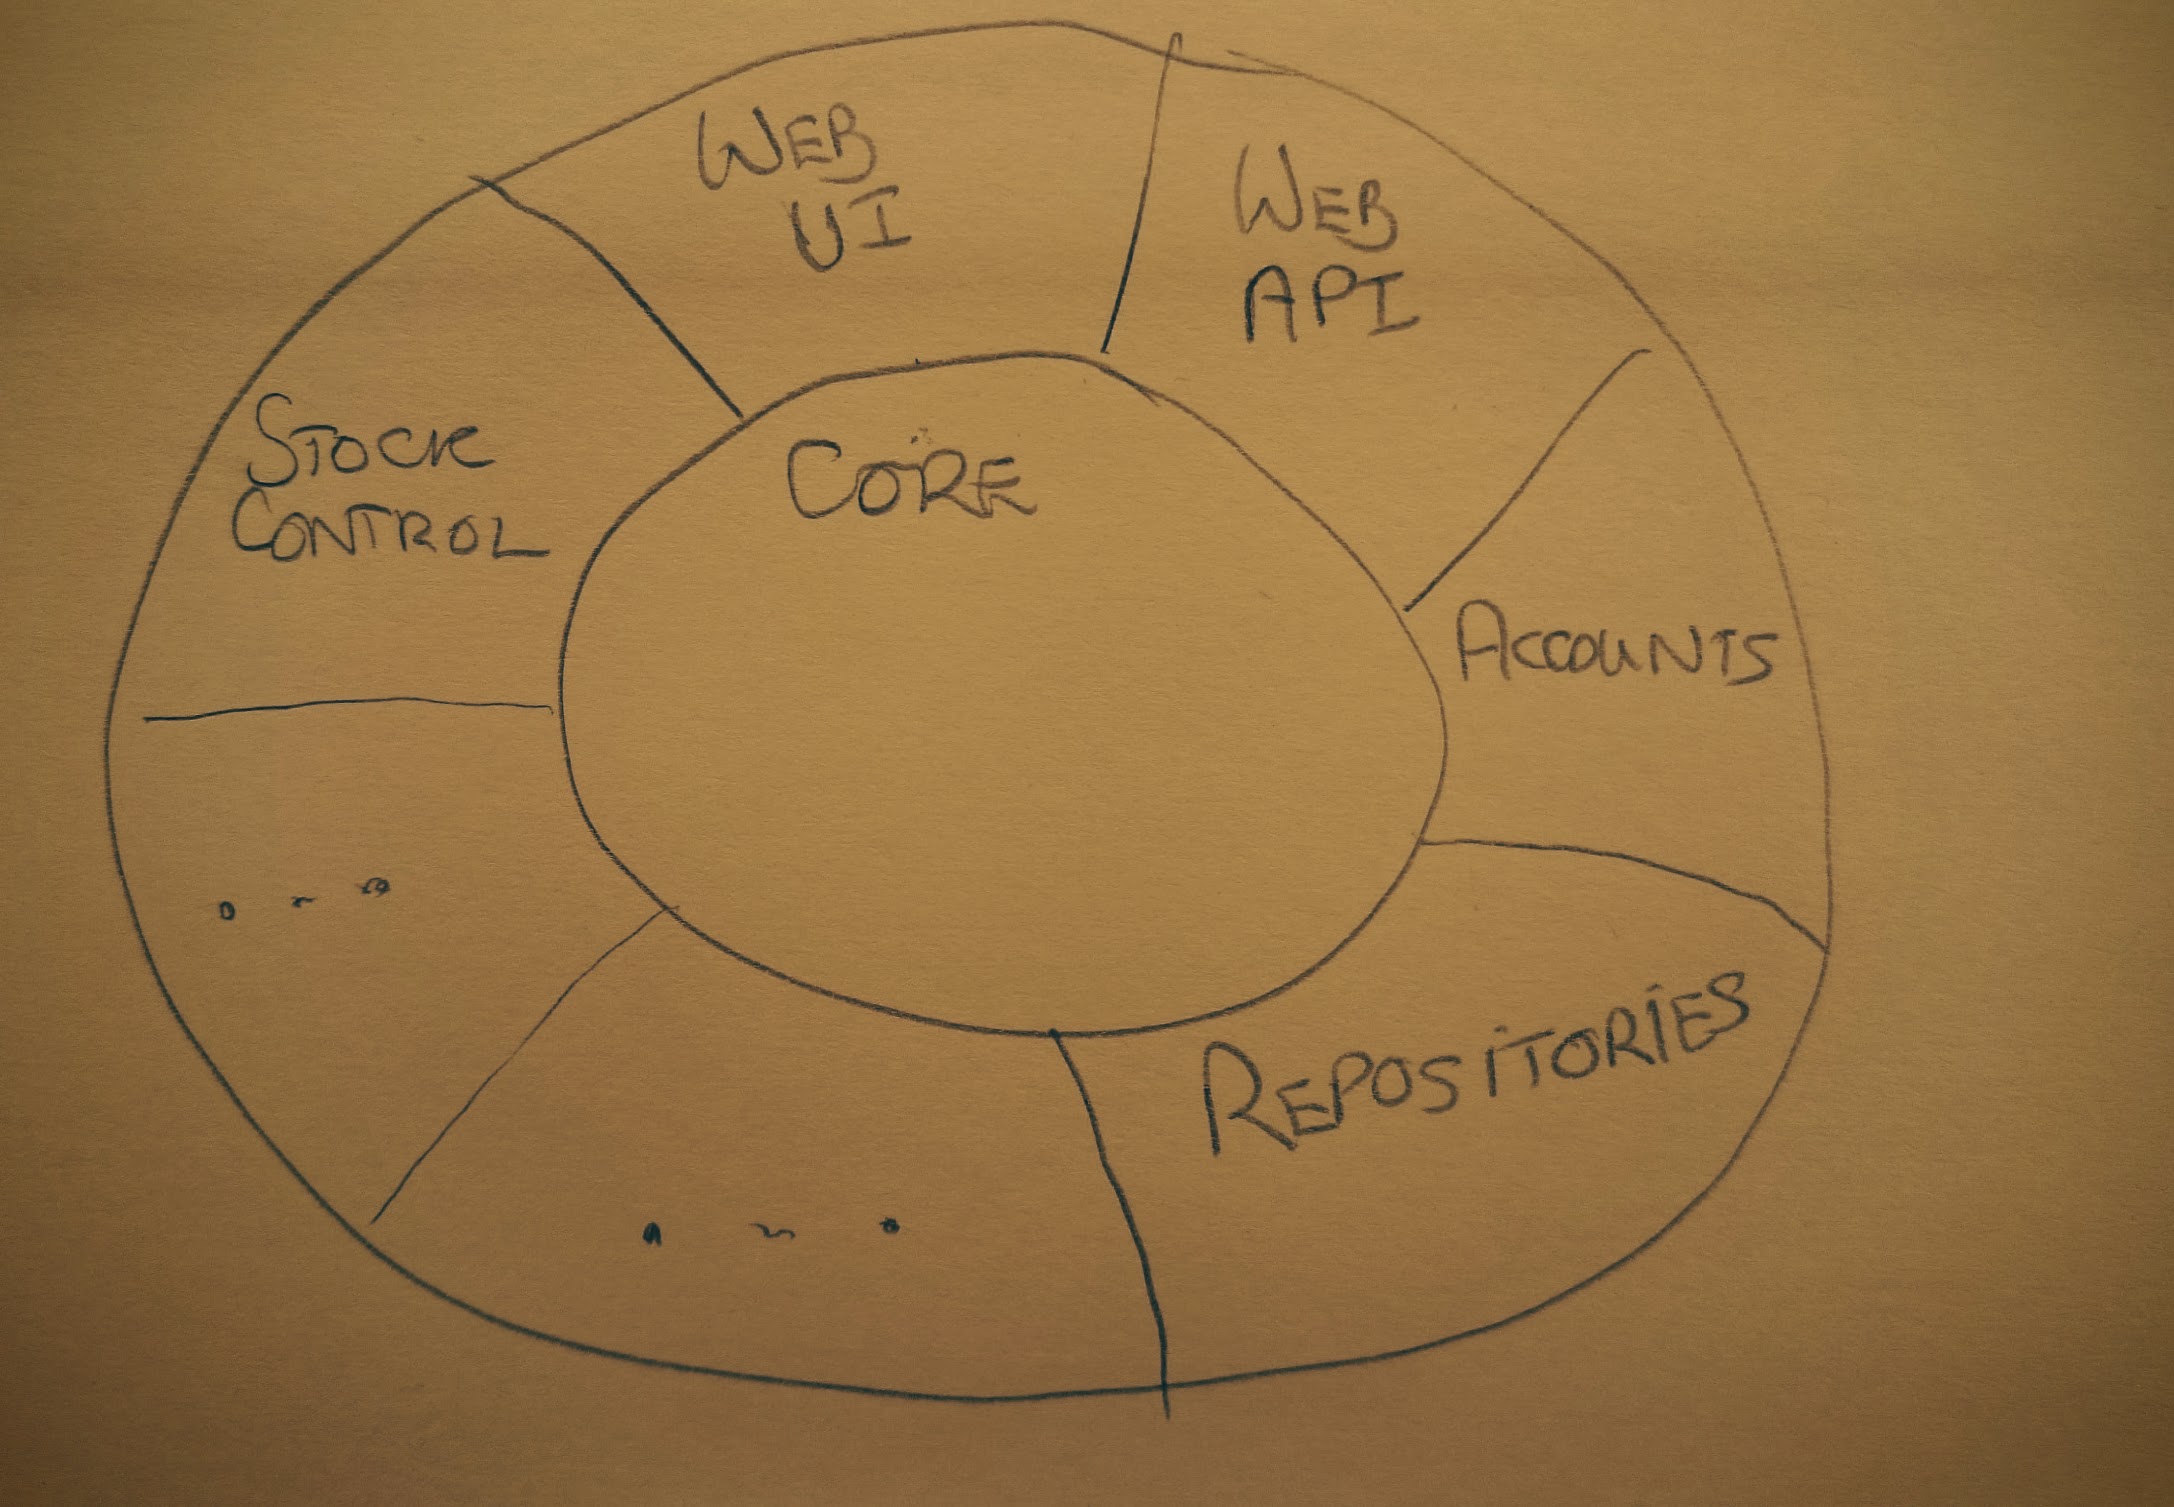 WEB
UI
WEB
API
STOCK
CONTROL
CORE
ACCOUNTS
...
REPOSITORIES
...